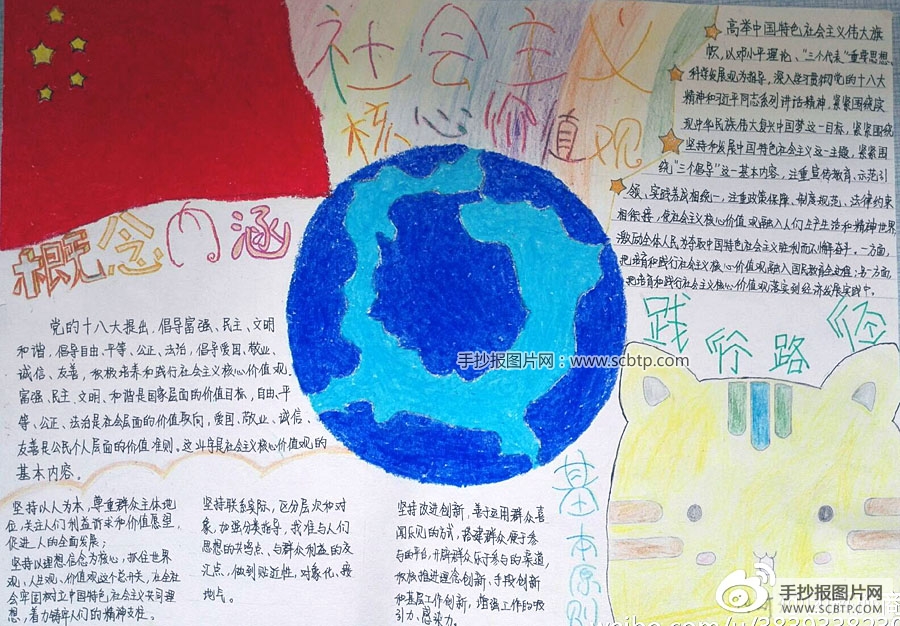 社会主义
核心价值观
高举中国特色社会主义伟大旗
帜,以邓小平理论、“三个代表”重要思想、
科学发展观为指导,深入学习贯彻党的十八大
精神和习近平同志系列讲话精神,紧紧围绕实
现中华民族伟大复兴中国梦这一目标,紧紧围绕
坚持和发展中国特色社会主义这一主题,紧紧围
绕“三个倡导”这一基本内容,注重宣传教育、示范引
领、实践养成相统一,注重政策保障、制度规范、法律约束
相衔接,使社会主义核心价值观融入人们生产生活和精神世界
激励全体人民为夺取中国特色社会主义胜利而不懈奋斗。一方面,
把培育和践行社会主义核心价值观融入国民教育全过程;另一方面,
把培育和践行社会主义核心价值观落实到经济发展实践中。
概念内涵
党的十八大提出,倡导富强、民主、文明
和谐,倡导自由、平等、公正、法治,倡导爱国、敬业、
诚信、友善,积极培养和践行社会主义核心价值观。
富强、民主、文明、和谐是国家层面的价值目标,自由、平
等、公正、法治是社会层面的价值取向,爱国、敬业、诚信、
友善是公民个人层面的价值准则。这24字是社会主义核心价值观的
基本内容。
手抄报图片网:www.scbtp.com
践行路径
基本原则
坚持以人为本,尊重群众主体地
位,关注人们利益诉求和价值愿望,
促进人的全面发展;
坚持以理想信念为核心,抓住世界
观、人生观、价值观这个总开关,在全社
会牢固树立中国特色社会主义共同理
想,着力铸牢人们的精神支柱。
坚持联系实际,区分层次和对
象,加强分类指导,找准与人们
思想的共鸣点、与群众利益的交
汇点,做到贴近性、对象化、接
地气。
坚持改进创新,善于运用群众喜
闻乐见的方式,搭建群众便于参
与的平台,开辟群众乐于参与的渠道,
积极推进理念创新、手段创新
和基层工作创新,增强工作的吸
引力、感染力。
手抄报图片网
WWW.SCBTP.COM